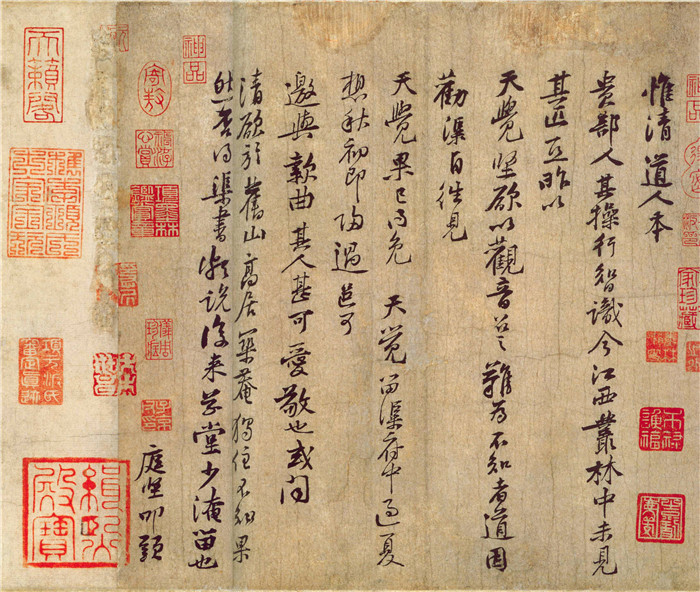 惟清道人本
貴部人其操行智識今江西叢林中未見
其匹亞昨以
天覺堅欲以觀音召之難為不知者道因
勸渠自往見
天覺果已得免 天覺留渠府中過夏
想秋初即歸過邑可
邀與款曲其人甚可愛敬也或問
清欲於舊山高居築菴獨住不知果
然否得渠書頗說後來草堂少淹留也
庭堅叩頭
神品
天籟閣
緝熙殿寶